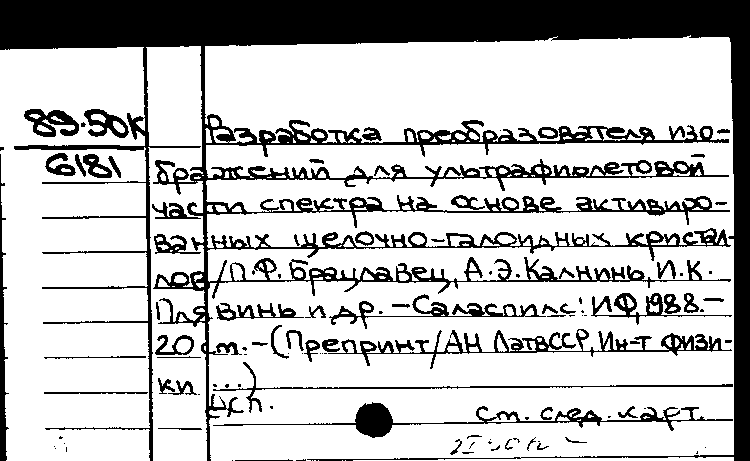 89-50К
6181
Разработка преобразователя изо-
бражений для ультрафиолетовой
части спектра на основе активиро-
ванных щелочно-галоидных кристал-
лов/П.Ф. Брацлавец, А.Э. Калнинь, И.К.
Плявинь и др. - Саласпилс: ИФ, 1988.-
20 см. - (Препринт/АН ЛатвССР, Ин-т физи-
ки ...)
см. след. карт.